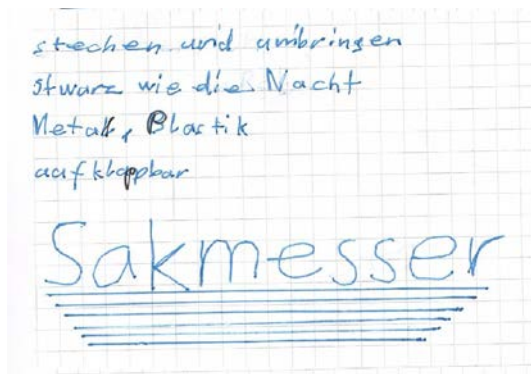 stechen und umbringen
stwarz wie die Nacht
Metall, Blastik
aufklappbar
Sakmesser